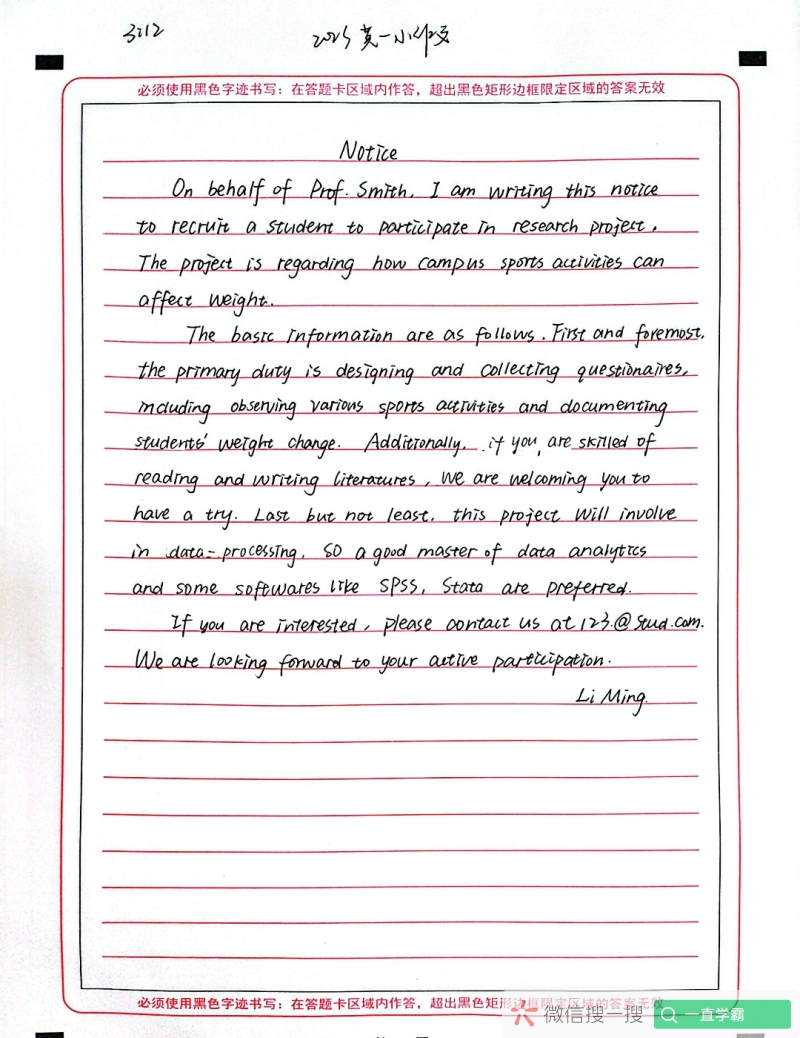 3.12
2025 英一小作文
必须使用黑色字迹书写：在答题卡区域内作答，超出黑色矩形边框限定区域的答案无效
Notice
On behalf of Prof. Smith, I am writing this notice
to recruit a student to participate in research project.
The project is regarding how campus sports activities can
affect weight.
The basic information are as follows. First and foremost,
the primary duty is designing and collecting questionaires,
including observing various sports activities and documenting
students' weight change. Additionally, if you are skilled of
reading and writing literatures, we are welcoming you to
have a try. Last but not least, this project will involve
in data-processing, so a good master of data analytics
and some softwares like SPSS, Stata are preferred.
If you are interested, please contact us at 123@stud.com.
We are looking forward to your active participation.
Li Ming.
必须使用黑色字迹书写：在答题卡区域内作答，超出黑色矩形边框限定区域的答案无效
微信搜一搜 一直学霸